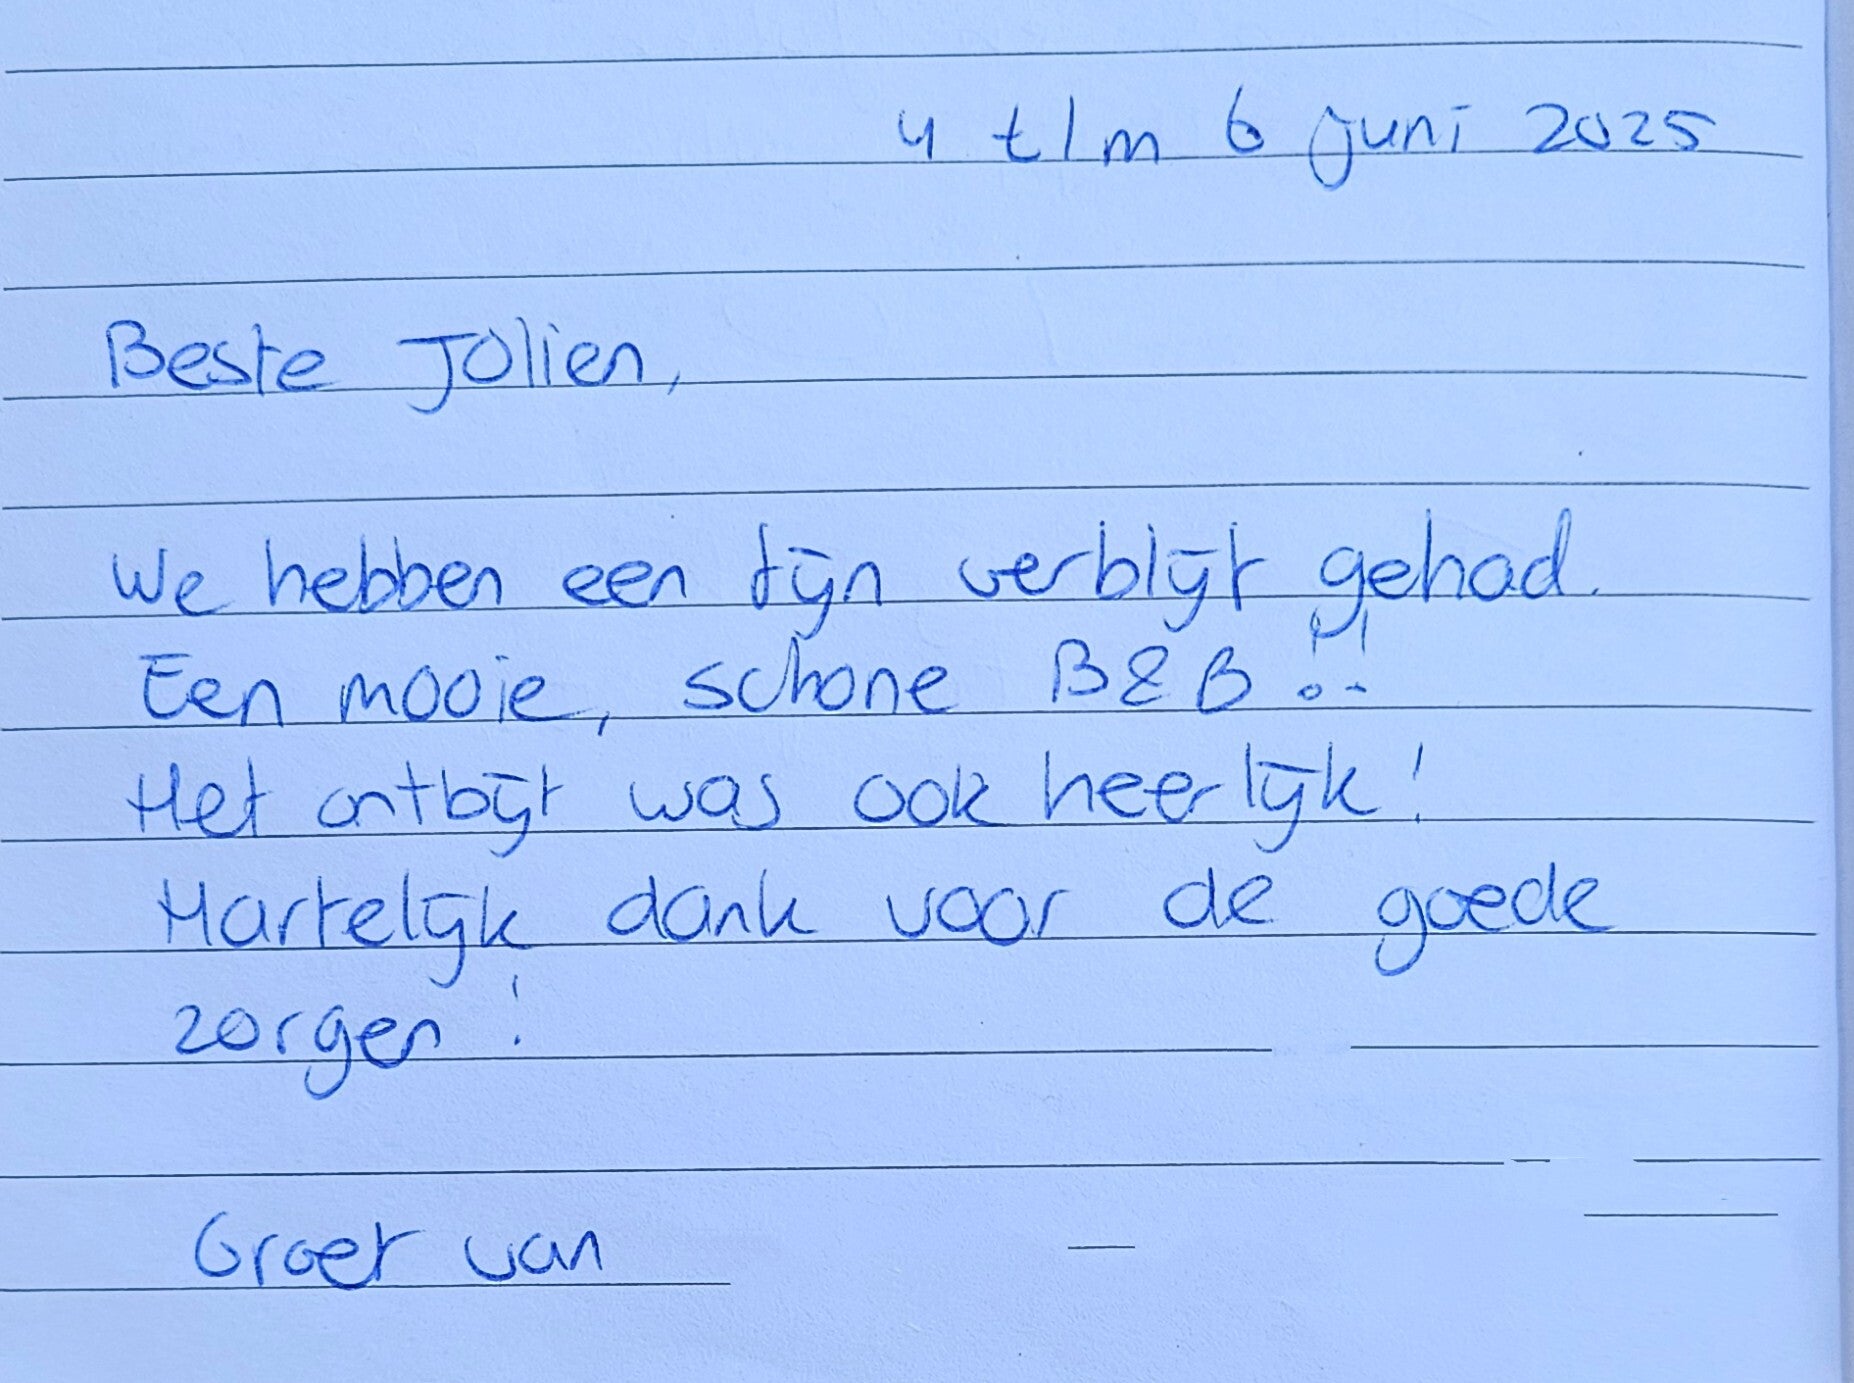 4 t/m 6 juni 2025
Beste Jolien,
We hebben een fijn verblijf gehad.
Een mooie, schone B&B !!
Het ontbijt was ook heerlijk!
Hartelijk dank voor de goede
zorgen!
Groet van